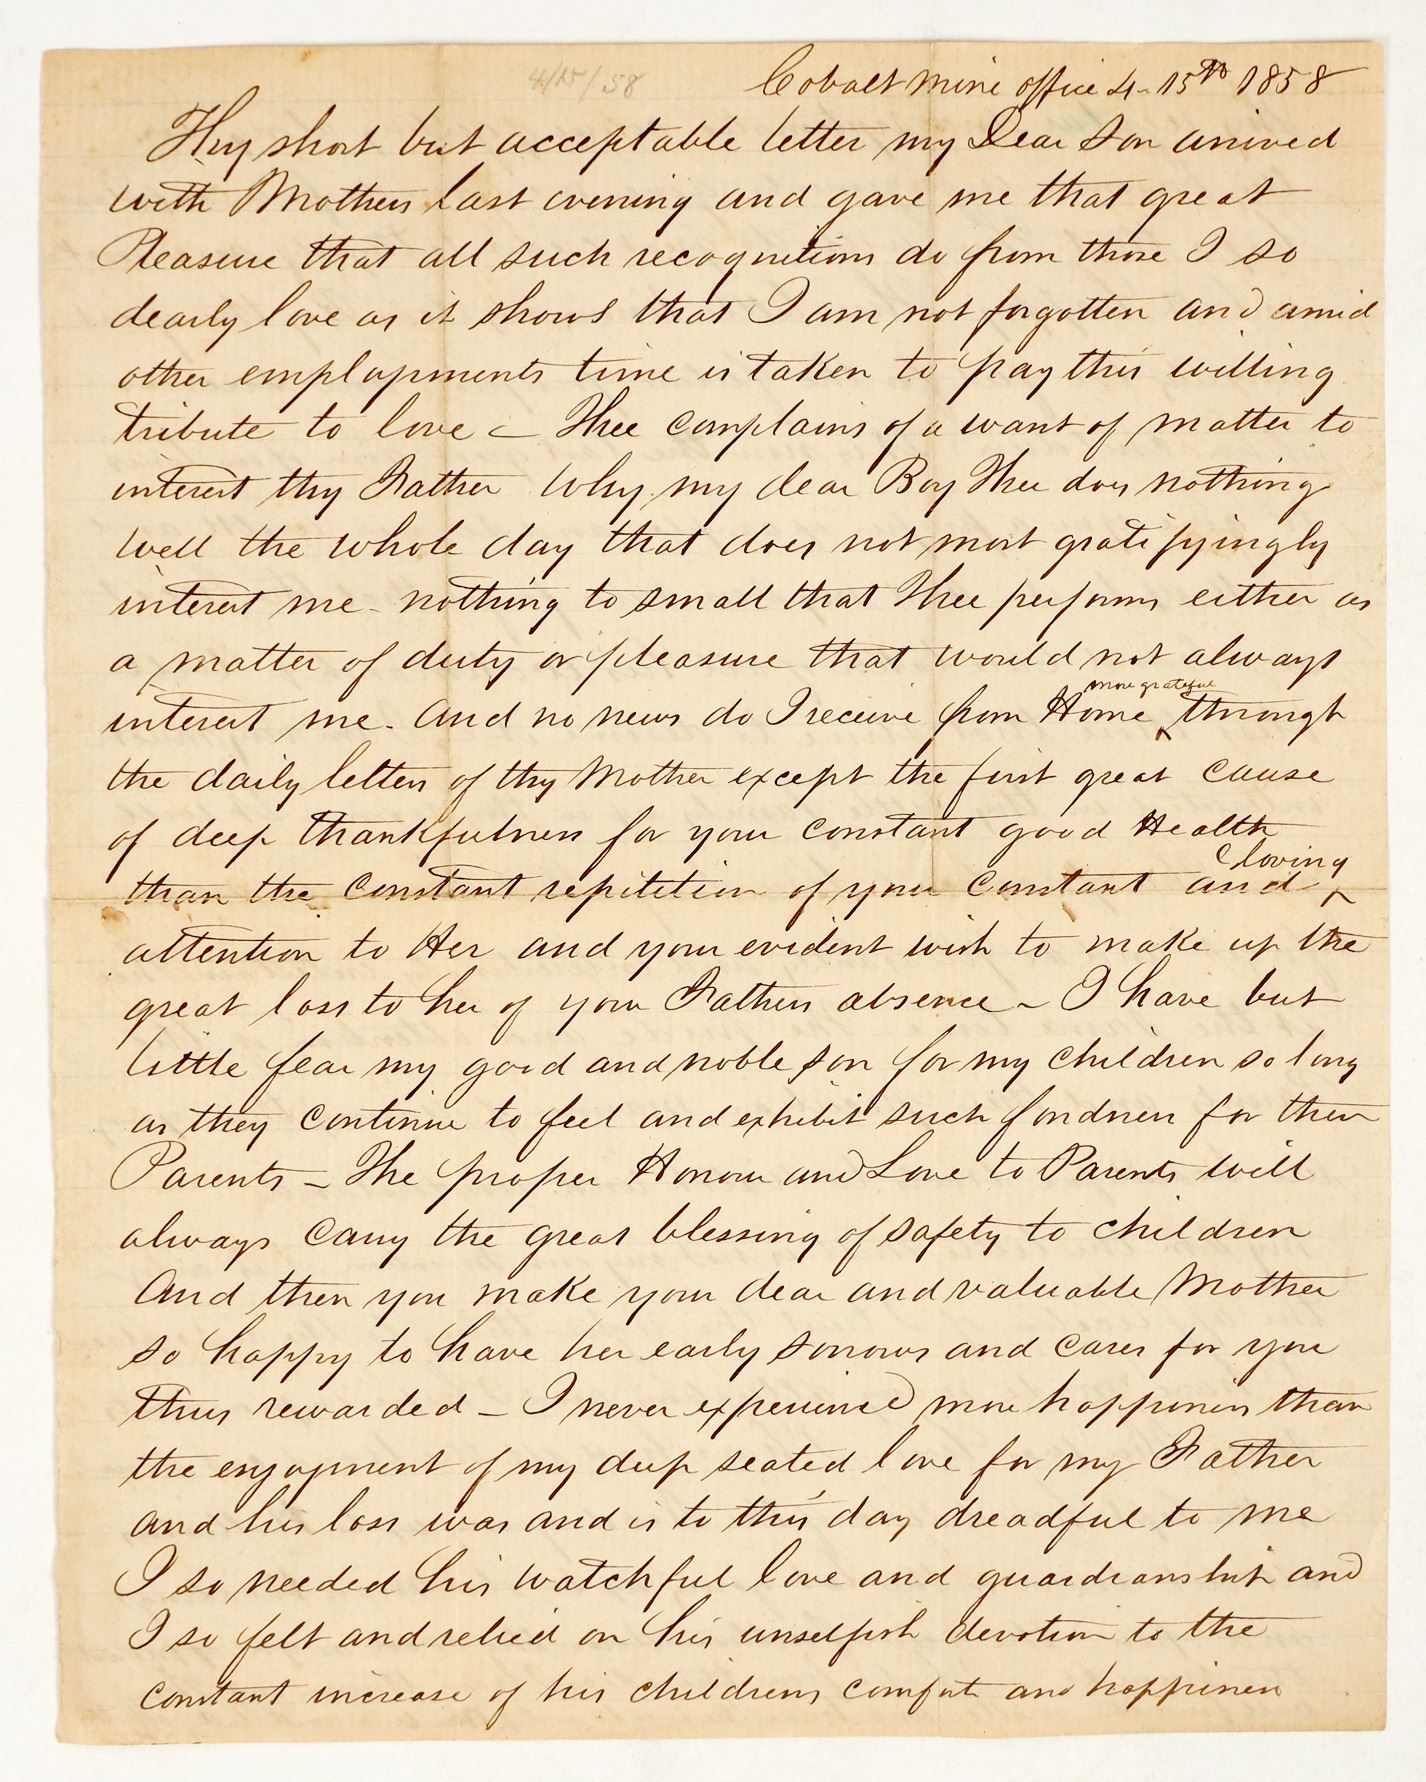 4/15/58
Cobalt Mine office 4-15th 1858
Thy short but acceptable letter my Dear Son arrived
with Mothers last evening and gave me that great
Pleasure that all such recognitions do from those I so
dearly love as it shows that I am not forgotten and amid
other employments time is taken to pay this willing
tribute to love – Thee complains of a want of matter to
interest thy Father Why my dear Boy Thee does nothing
well the whole day that does not most gratifyingly
interest me – nothing to small that Thee performs either as
a matter of duty or pleasure that would not always
more grateful
interest me – And no news do I receive from Home ‸ through
the daily letters of thy Mother except the first great cause
of deep thankfulness for your constant good Health
loving
than the constant repitition of your constant and ‸
attention to Her and your evident wish to make up the
great loss to her of your Fathers absence – I have but
little fear my good and noble son for my children so long
as they continue to feel and exhibit such fondness for their
Parents – The proper Honour and Love to Parents will
always carry the great blessing of safety to children
And then you make your dear and valuable Mother
so happy to have her early sorrows and cares for you
thus rewarded – I never experienced more happiness than
the enjoyment of my deep seated love for my Father
and his loss was and is to this day dreadful to me
I so needed his watchful love and guardianship and
I so felt and relied on his unselfish devotion to the
constant increase of his childrens comfort and happiness